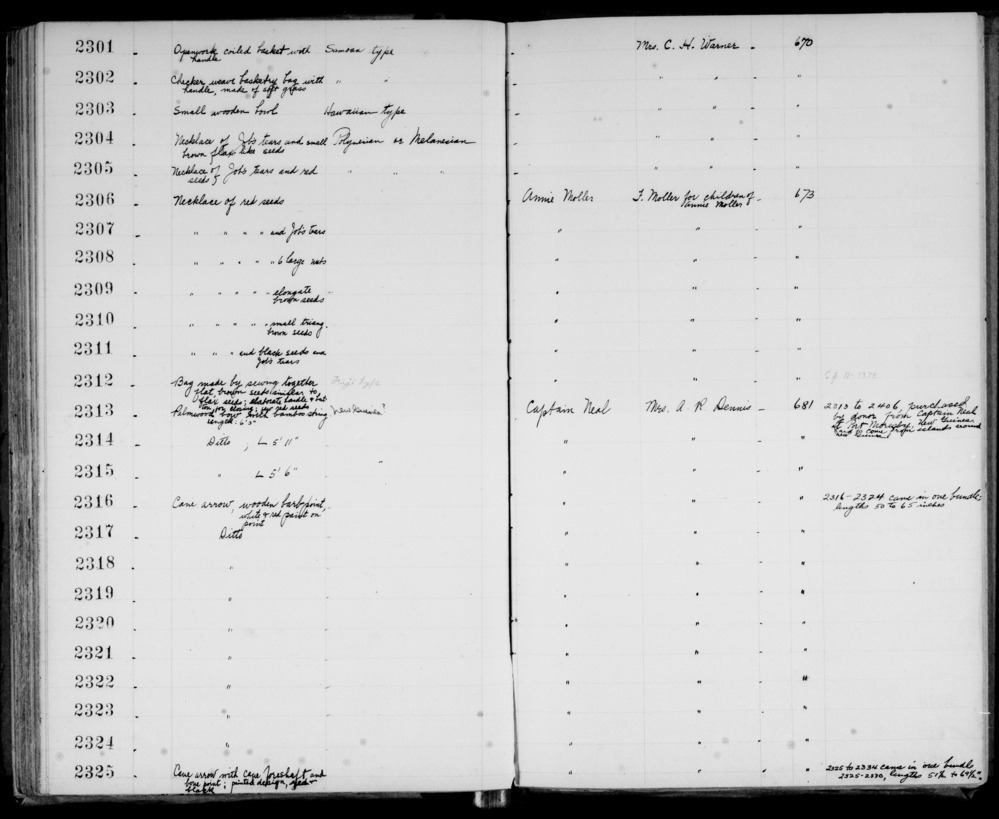 2301 - Openwork coiled basket with Samoan type - Mrs. C. H. Warner - 670
handle
2302 - Checker weave basketry bag with " " - " " -
handle, made of soft grass
2303 - Small wooden bowl Hawaiian type - " " -
2304 - Necklace of Job's tears and small Polynesian or Melanesian - " " -
brown flax like seeds
2305 - Necklace of Job's tears and red " " " - " -
seeds
2306 - Necklace of red seeds Annie Moller F. Moller for children of - 673
Annie Moller
2307 - " " " " and Job's tears " " - "
2308 - " " " " " 6 large nuts " " - "
2309 - " " " " - elongate " " - "
brown seeds
2310 - " " " " " small triang. " " - "
brown seeds
2311 - " " " and black seeds and " " - "
Job's tears
2312 - Bag made by sewing together Fiji type " " - "
flat brown seeds similar to
flax seeds; elaborate handle & but
ton for closing; red seeds
2313 - Palmwood bow with bamboo string Captain Neal Mrs. A. R. Dennis - 681 2313 to 2406, purchased
length: 6'3" by donor from Captain Neal
at Port Moresby, New Guinea
said to come from islands around
New Guinea
2314 - Ditto, L 5'11" " " - "
2315 - " L 5'6" " " " - "
2316 - Cane arrow, wooden barb point, - " " " 2316-2324 came in one bundle:
white & red paint on lengths 50 to 65 inches
point
2317 - Ditto - " " - "
2318 - " " " - "
2319 - " " " - "
2320 - " " " - "
2321 - " " " - "
2322 - " " " - "
2323 - " " " - "
2324 - " " " - "
2325 - Cane arrow with cane foreshaft and " " - " 2325 to 2334 came in one bundle
bone point; painted design, red + 2325-2330, lengths
black